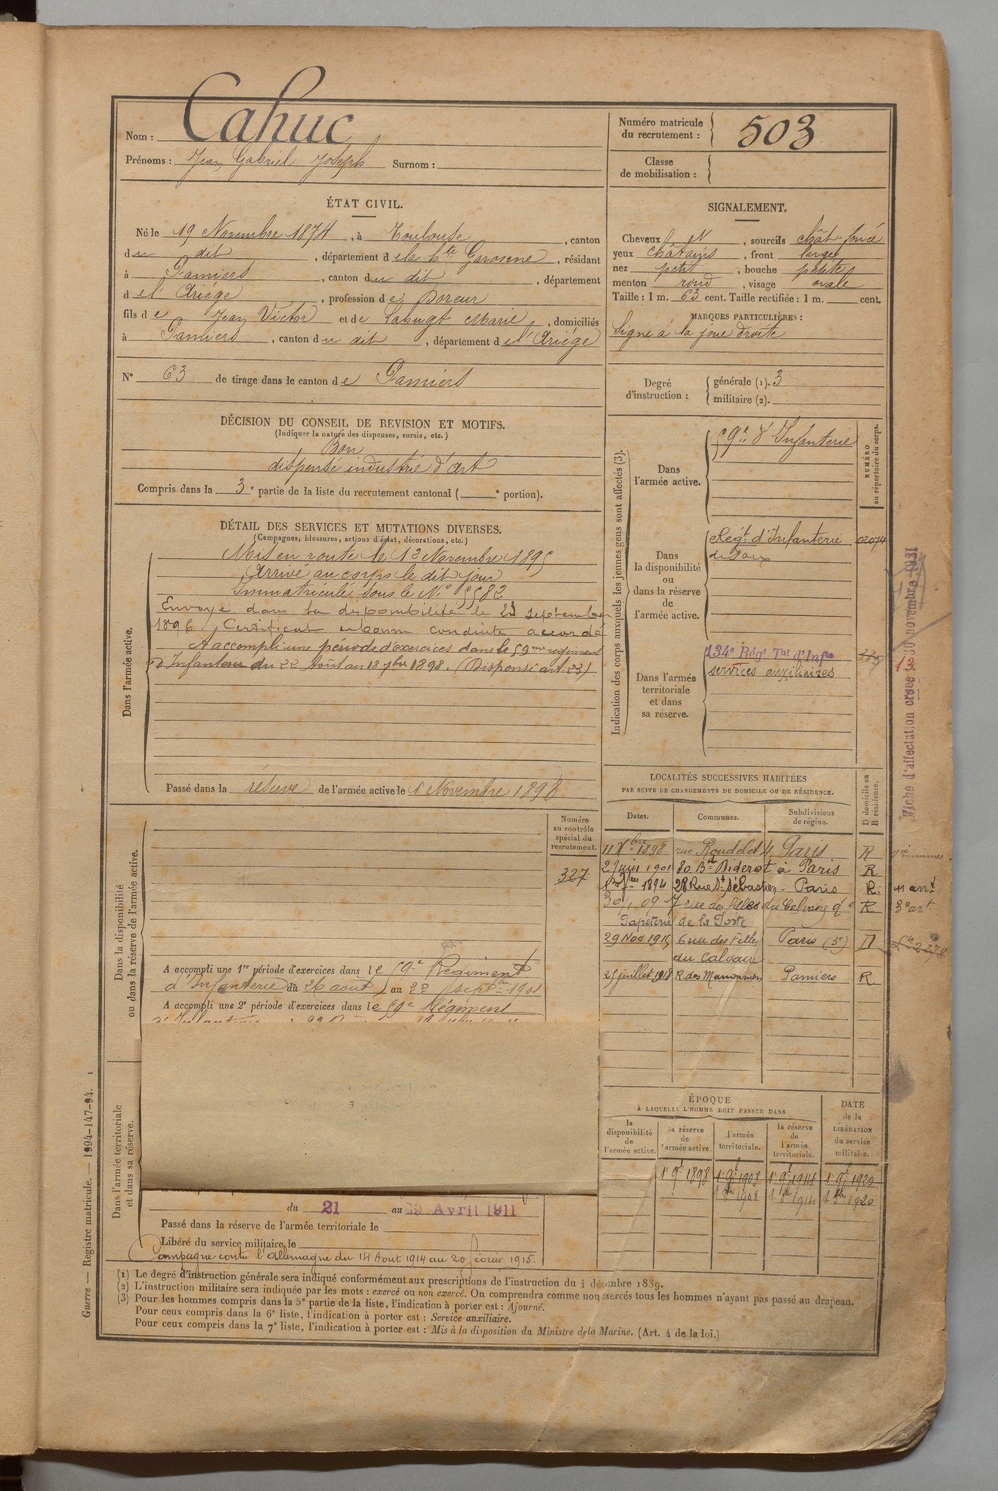 Nom : Cahuc
Prénoms : Jean Gabriel Joseph Surnom :
Numéro matricule du recrutement : 503
Classe de mobilisation :
ÉTAT CIVIL.
Né le 19 Novembre 1874, à Toulouse, canton
du dit, département de la hte Garonne, résidant
à Pamiers, canton du dit, département
de l'Ariège, profession de
fils de Jean Victor et de Marie, domiciliés
à Pamiers, canton du dit, département de l'Ariège
N° 63 de tirage dans le canton de Pamiers
SIGNALEMENT.
Cheveux, sourcils chât-foncé
yeux châtains, front large
nez petit, bouche petite
menton rond, visage ovale
Taille : 1 m. 63 cent. Taille rectifiée : 1 m. cent.
MARQUES PARTICULIÈRES :
Signe à la joue droite
Degré d'instruction : générale (1). 3
militaire (2).
DÉCISION DU CONSEIL DE REVISION ET MOTIFS.
(Indiquer la nature des dispenses, sursis, etc.)
Bon
dispensé industrie d'art
Compris dans la 3e partie de la liste du recrutement cantonal ( e portion).
DÉTAIL DES SERVICES ET MUTATIONS DIVERSES.
(Campagnes, blessures, actions d'éclat, décorations, etc.)
Dans l'armée active.
Mis en route le 13 Novembre 1895
Arrivé au corps le dit jour
Immatriculé sous le N°
Envoyé dans la disponibilité le 23 septembre
1896. Certificat de bonne conduite accordé
A accompli une période d'exercices dans le 59me régiment
d'Infanterie du 22 août au 18 7bre 1898. (Dispensé art. 23)
Passé dans la réserve de l'armée active le 1 Novembre 1898
Indication des corps auxquels les jeunes gens sont affectés (3).
NUMÉRO au répertoire du corps.
Dans l'armée active.
59e d'Infanterie
Dans la disponibilité ou dans la réserve de l'armée active.
Régt d'Infanterie
de Foix
Dans l'armée territoriale et dans sa réserve.
134e Régt Tal d'Infie
services auxiliaires
Fiche d'affectation créée le 30 novembre 1931
Dans la disponibilité ou dans la réserve de l'armée active.
Numéro au contrôle spécial du recrutement.
327
A accompli une 1re période d'exercices dans le 59e Régiment
d'Infanterie du 26 août au 22 septbre 1901
A accompli une 2e période d'exercices dans le 59e Régiment
LOCALITÉS SUCCESSIVES HABITÉES
PAR SUITE DE CHANGEMENTS DE DOMICILE OU DE RÉSIDENCE.
D domicile ou R résidence.
Dates. Communes. Subdivisions de région.
11 Xbre 1898 rue 4, Paris R
29 juin 1901 80 Bd Diderot à Paris R
28 Rue St Sébastien Paris R
7 rue des filles du Calvaire R
Papeterie de la Poste
29 Nov 1915 6 rue des filles du Calvaire Paris (5e) D
25 juillet 1918 Pamiers R
ÉPOQUE
À LAQUELLE L'HOMME DOIT PASSER DANS
la disponibilité de l'armée active.
la réserve de l'armée active.
l'armée territoriale.
la réserve de l'armée territoriale.
DATE de la LIBÉRATION du service militaire.
1er 9bre 1898 1er 9bre 1908 1er 9bre 1914 1er 9bre 1920
Dans l'armée territoriale et dans sa réserve.
du 21 au 29 Avril 1911
Passé dans la réserve de l'armée territoriale le
Libéré du service militaire, le
Campagne contre l'Allemagne du 14 Août 1914 au 20 février 1915.
(1) Le degré d'instruction générale sera indiqué conformément aux prescriptions de l'instruction du 4 décembre 1889.
(2) L'instruction militaire sera indiquée par les mots : exercé ou non exercé. On comprendra comme non exercés tous les hommes n'ayant pas passé au drapeau.
(3) Pour les hommes compris dans la 5e partie de la liste, l'indication à porter est : Ajourné.
Pour ceux compris dans la 6e liste, l'indication à porter est : Service auxiliaire.
Pour ceux compris dans la 7e liste, l'indication à porter est : Mis à la disposition du Ministre de la Marine. (Art. 4 de la loi.)
Guerre — Registre matricule. — 1994-147-94.